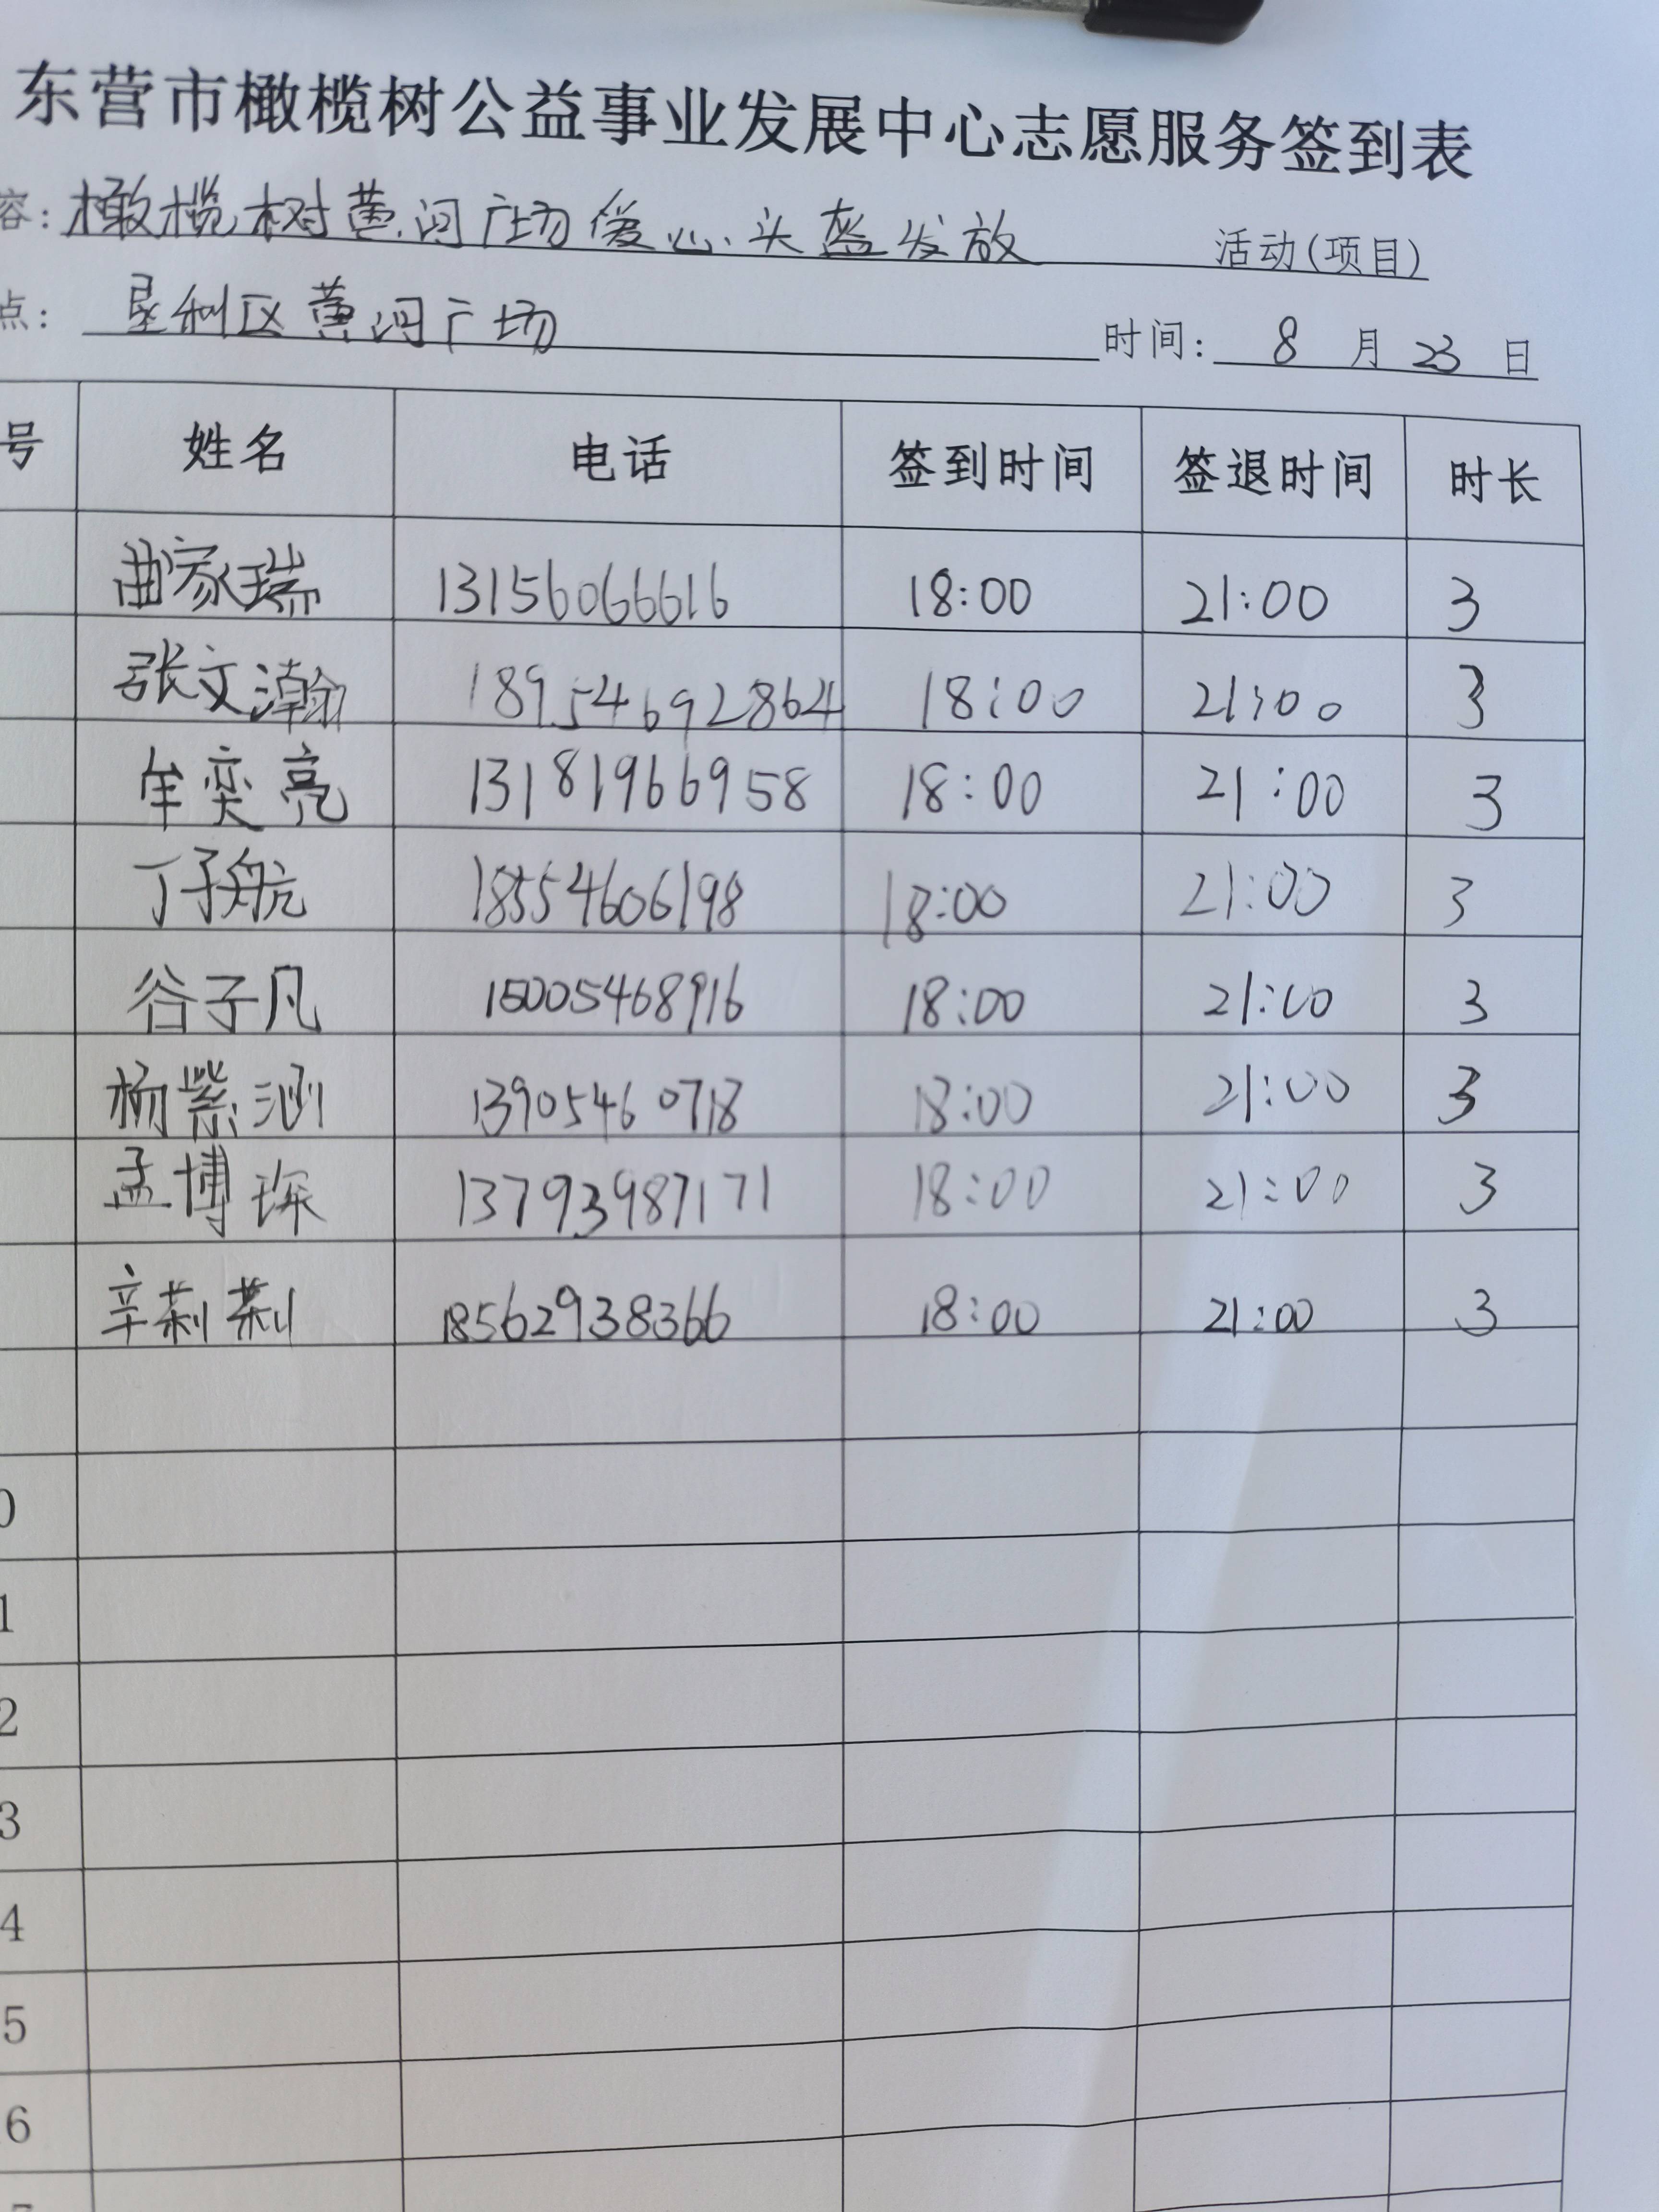 东营市橄榄树公益事业发展中心志愿服务签到表
容: 橄榄树黄河广场爱心头盔发放 活动(项目)
点: 垦利区黄河广场 时间: 8 月 23 日
号 姓名 电话 签到时间 签退时间 时长
曲家瑞 13156066616 18:00 21:00 3
张文瀚 18954692864 18:00 21:00 3
牟奕亮 13181966958 18:00 21:00 3
丁子航 18554606198 18:00 21:00 3
谷子凡 15005468916 18:00 21:00 3
杨紫涵 13905460718 18:00 21:00 3
孟博琛 13793987171 18:00 21:00 3
辛莉莉 18562938366 18:00 21:00 3
0
1
2
3
4
5
6